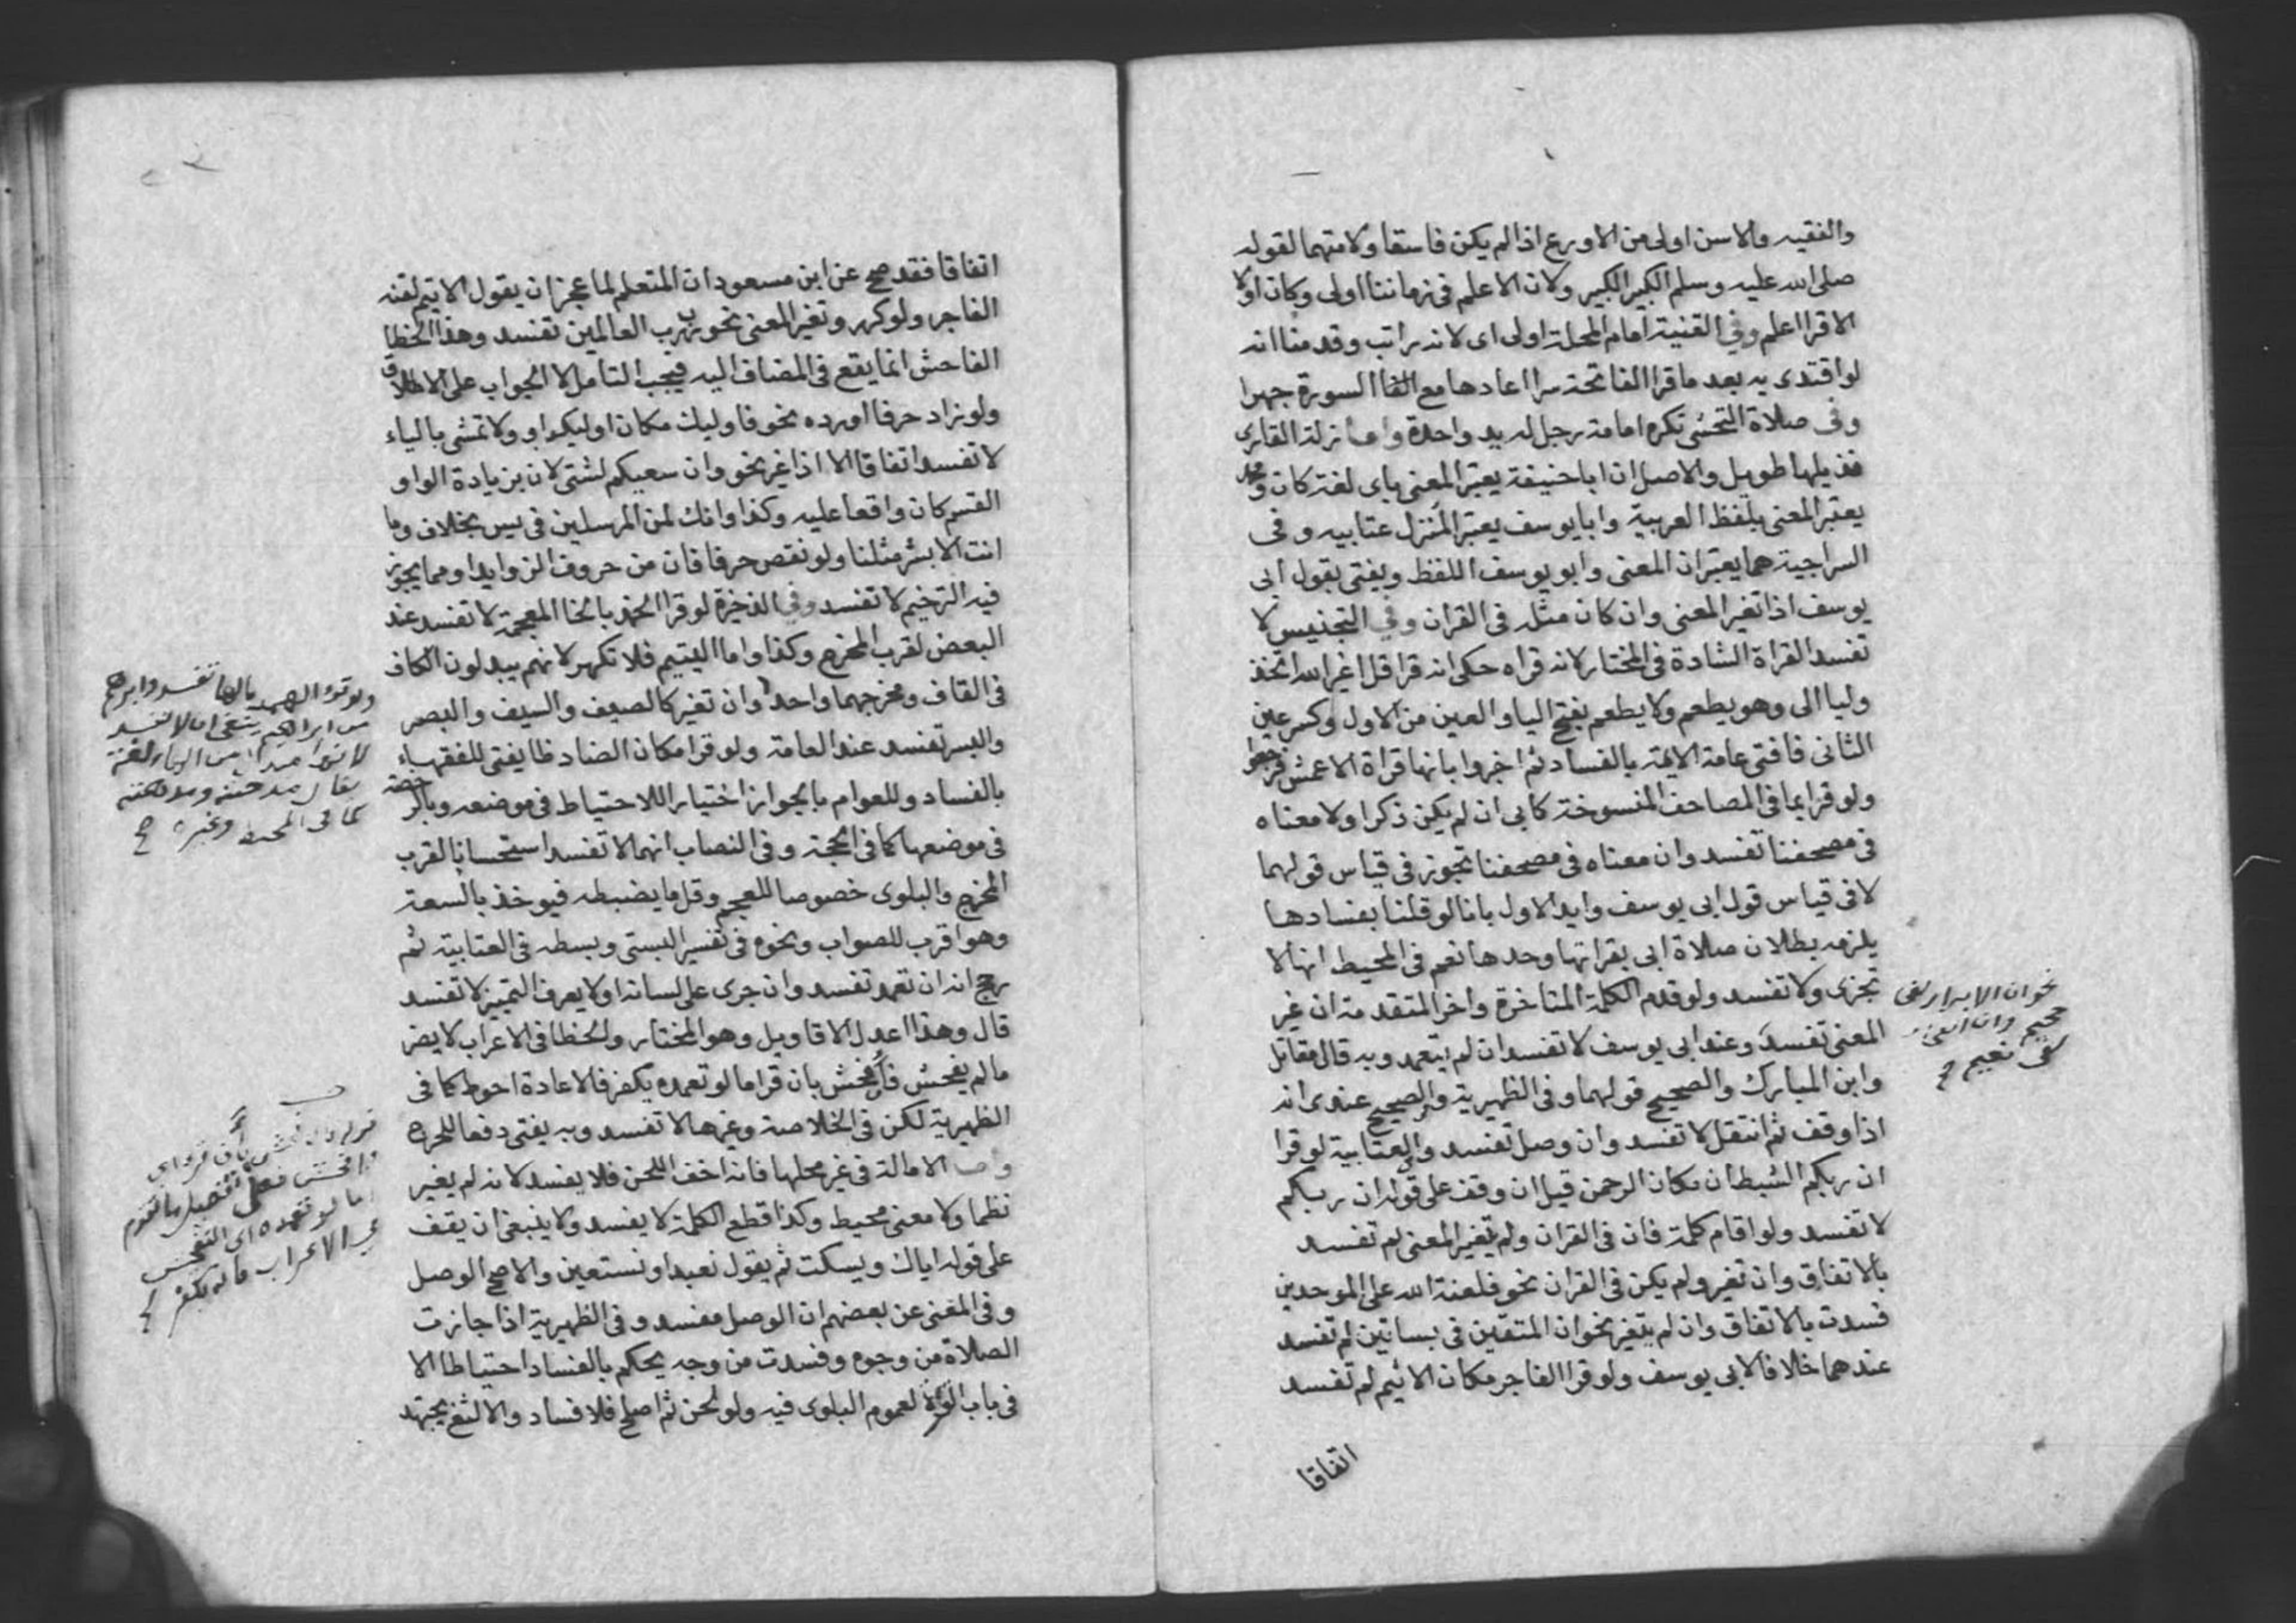 والفقيه والاسن اولى من الاورع اذا لم يكن فاسقا ولا متهما لقوله
صلى الله عليه وسلم الكبير الكبير ولان الاعلم في زماننا اولى وكان اولا
الاقرا اعلم وفي القنية امام المحلة اولى اى لانه راتب وقدمنا انه
لو اقتدى به بعد ما قرا الفاتحة سرا اعادها مع السورة جهرا
وفى صلاة التحسنى تكره امامة رجل له يد واحدة واما زلة القارى
فذيلها طويل والاصل ان ابا حنيفة يعتبر المعنى باى لغة كان ومحمد
يعتبر المعنى بلفظ العربية وابا يوسف يعتبر المنزل عتابيه وفى
السراجية هما يعتبران المعنى وابو يوسف اللفظ ويفتى بقول ابى
يوسف اذا تغير المعنى وان كان مثله فى القران وفي التجنيس لا
تفسد القراة الشادة فى المختار لانه قراه حكى انه قرا قل اغير الله اتخذ
وليا الى وهو يطعم ولا يطعم بفتح اليا والعين من الاول وكسر عين
الثانى فافتى عامة الايمة بالفساد ثم اخبروا بانها قراة الاعمش فرجعوا
ولو قرا بما فى المصاحف المنسوخة كابى ان لم يكن ذكرا ولا معناه
فى مصحفنا تفسد وان معناه فى مصحفنا تجوز فى قياس قولهما
لا فى قياس قول ابى يوسف وايد الاول بانا لو قلنا بفسادها
يلزمه بطلان صلاة ابى بقراتها وحدها نعم فى المحيط انها لا
تجزى ولا تفسد ولو قدم الكلمة المتاخرة واخر المتقدمة ان غير
المعنى تفسد وعند ابى يوسف لا تفسد ان لم يتعمد وبه قال مقاتل
وابن المبارك والصحيح قولهما وفى الظهيرية والصحيح عندى انه
اذا وقف ثم انتقل لا تفسد وان وصل تفسد وفى العتابية لو قرا
ان ربكم الشيطان مكان الرحمن قيل ان وقف على قوله ان ربكم
لا تفسد ولو اقام كلمة فان فى القران ولم يتغير المعنى لم تفسد
بالاتفاق وان تغير ولم يكن فى القران نحو فلعنة الله على الموحدين
فسدت بالاتفاق وان لم يتغير نحو ان المتقين فى بساتين لم تفسد
عندهما خلافا لابى يوسف ولو قرا الفاجر مكان الاثيم لم تفسد
اتفاقا
نحو ان الابرار لفى
جحيم وان الفجار
لفى نعيم
اتفاقا فقد صح عن ابن مسعود ان المتعلم لما عجز ان يقول الاثيم لقنه
الفاجر ولو كرر وتغير المعنى نحو رب رب العالمين تفسد وهذا الخطا
الفاحش انما يقع فى المضاف اليه فيجب التامل لا الجواب على الاطلاق
ولو زاد حرفا اورده نحو فاوليك مكان اوليك او ولا تمشى بالياء
لا تفسد اتفاقا الا اذا غير نحو وان سعيكم لشتى لان بزيادة الواو
القسم كان واقعا عليه وكذا وانك لمن المرسلين فى يس بخلاف وما
انت الا بشر مثلنا ولو نقص حرفا فان من حروف الزوايد او مما يجوز
فيه الترخيم لا تفسد وفي الذخيرة لو قرا الخمد بالخا المعجمة لا تفسد عند
البعض لقرب المخرج وكذا واما اليتيم فلا تكهر لانهم يبدلون الكاف
فى القاف ومخرجهما واحد وان تغير كالصيف والسيف والبصر
والبسر تفسد عند العامة ولو قرا مكان الضاد ظا يفتى للفقهاء
بالفساد وللعوام بالجواز اختيارا للاحتياط فى موضعه وبالرخصة
فى موضعها كما فى الحجة وفى النصاب انهما لا تفسد استحسانا لقرب
المخرج والبلوى خصوصا للعجم وقل ما يضبطه فيوخذ بالسعة
وهو اقرب للصواب ونحوه فى تفسير البستى وبسطه فى العتابية ثم
رجح انه ان تعمد تفسد وان جرى على لسانه او لا يعرف التمييز لا تفسد
قال وهذا اعدل الاقاويل وهو المختار والخطا فى الاعراب لا يضر
ما لم يفحش فان فحش بان قرا ما لو تعمده يكفر فالاعادة احوط كما فى
الظهيرية لكن فى الخلاصة وغيرها لا تفسد وبه يفتى دفعا للحرج
واما الامالة فى غير محلها فانه اخف اللحن فلا يفسد لانه لم يغير
نظما ولا معنى محيط وكذا قطع الكلمة لا يفسد ولا ينبغى ان يقف
على قوله اياك ويسكت ثم يقول نعبد او نستعين والاصح الوصل
وفى المغنى عن بعضهم ان الوصل مفسد وفى الظهيرية اذا جازت
الصلاة من وجوه وفسدت من وجه يحكم بالفساد احتياطا الا
فى باب القراة لعموم البلوى فيه ولو لحن ثم اصلح فلا فساد والالثغ يجتهد
ولو قرا الصمد بالها تفسد وابرهم
من ابراهيم ينبغى ان لا تفسد
كما فى المحيط وغيره
ما لو تعمده اى التفحش
فى الاعراب فانه يكفر